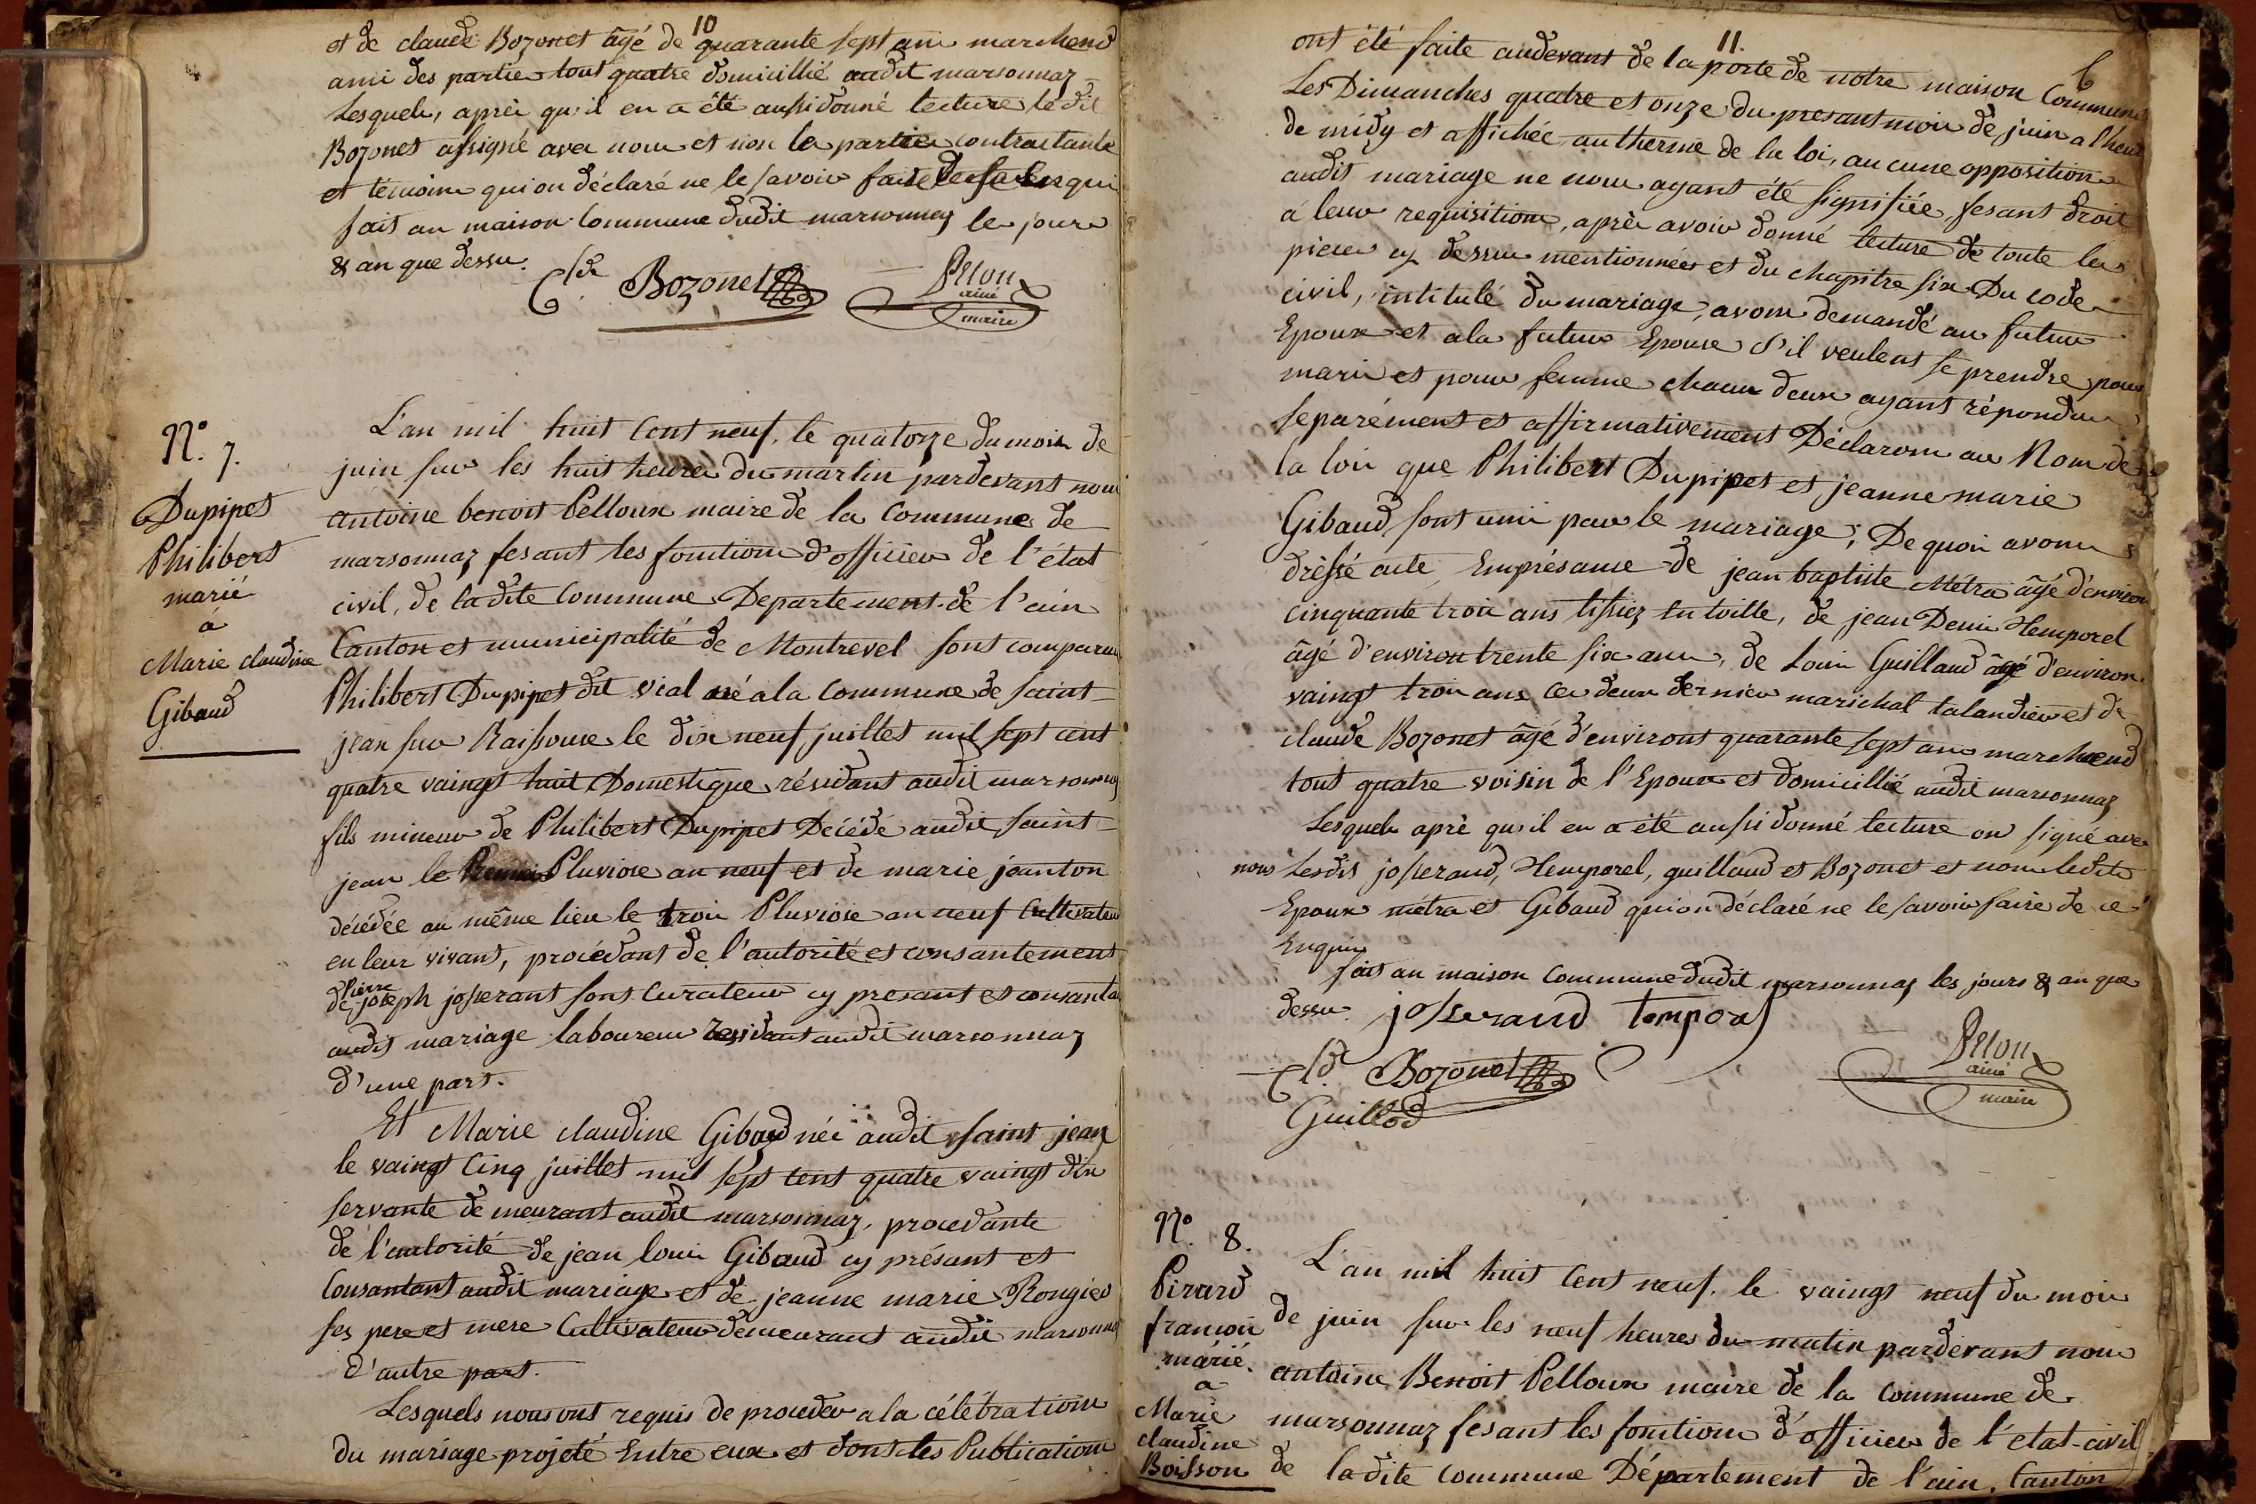 10
et de claude Bozonet âgé de quarante sept ans marchend
ami des partie tout quatre domicillié audit marsonnaz
Lesquels, après qu'il en a été aussi donné lecture le dit
Bozonet a signé avec nous et non les parties contractante
et témoins qui on déclaré ne le savoir faire de ce enquis
fait au maison Commune dudit marsonnaz les jours
& an que dessu.
Cde Bozonet
Peloux
ainé
maire
N.° 7.
Dupipet
Philibert
marié
a
Marie claudine
Gibaud
L'an mil huit Cent neuf, le quatorze du mois de
juin sur les huit heures du martin pardevant nous
antoine benoit Pelloux maire de la Commune de
marsonnaz fesant les fonctions d'officier de l'état
civil, de ladite Commune Departement de l'ain
Canton et municipalité de Montrevel sont comparu
Philibert Dupipet dit vial né a la Commune de saint
jean sur Raissouse le dix neuf juillet mil sept cent
quatre vaingt huit Domestique résidant audit marsonnaz
fils mineur de Philibert Dupipet Décédé audit saint
jean le Premier Pluviose an neuf et de marie jeanton
décédée au même lieu le trois Pluviose an neuf Cultivateur
en leur vivant, procédant de l'autorité et consantement
Pierre
de joseph josserant sont Curateur cy presant et consantant
audit mariage laboureur residant audit marsonnaz
d'une part.
Et Marie claudine Gibaud née audit saint jean
le vaingt Cinq juillet mil sept cent quatre vaingt dix
servante demeurant audit marsonnaz, procedante
de l'autorité de jean louis Gibaud cy présant et
Consantant audit mariage et de jeanne marie Rongier
ses pere et mere Cultivateur demeurant audit marsonnaz
d'autre part.
Lesquels nous ont requis de proceder a la célébration
du mariage projeté Entre eux et dont les Publications
11.
6
ont été faite audevant de la porte de notre maison Commune
Les Dimanches quatre et onze du presant mois de juin a l'heure
de midy et affichée au therme de la loi, aucune opposition
audit mariage ne nous ayant été signifiée, fesant droit
a leur requisitions, après avoir donné lecture de toute les
pieces cy dessus mentionnées et du chapitre six Du code
civil, intitulé du mariage, avons demandé au futur
Epoux et a la futur Epouse s'il veulent se prendre pour
mari et pour femme chacun deux ayant répondu
séparément et affirmativement Déclarons au Nom de
la loi que Philibert Dupipet et jeanne marie
Gibaud sont uni par le mariage; De quoi avons
dréssé acte Emprésance de jean baptiste Metra âgé d'environ
cinquante trois ans tissiez en toille, de jean Denis Temporel
âgé d'environ trente six ans, de Louis Guilland âgé d'environ
vaingt trois ans Ces deux dernier marichal talandier et de
claude Bozonet âgé d'environt quarante sept ans marchend
tout quatre voisin de l'Epoux et domicillié audit marsonnaz
Lesquels aprè qu'il en a été aussi donné lecture on signé avec
nous Lesdis josserand, Temporel, guillaud et Bozonet et non ledits
Epoux metra et Gibaud qui on déclaré ne le savoir faire de ce
Enquis
fait au maison Commune dudit marsonnaz les jours & an que
dessu.
josserand Temporel
Cde Bozonet
Peloux
ainé
maire
Guillod
N.° 8.
Pirard
francois
marié.
a
Marie
claudine
Boisson
L'an mil huit Cent neuf, le vaingt neuf du mois
de juin sur les neuf heures du matin pardevant nous
antoine Benoit Pelloux maire de la Commune de
marsonnaz fesant les fonctions d'officier de l'état-civil
de ladite Commune Département de l'ain, Canton